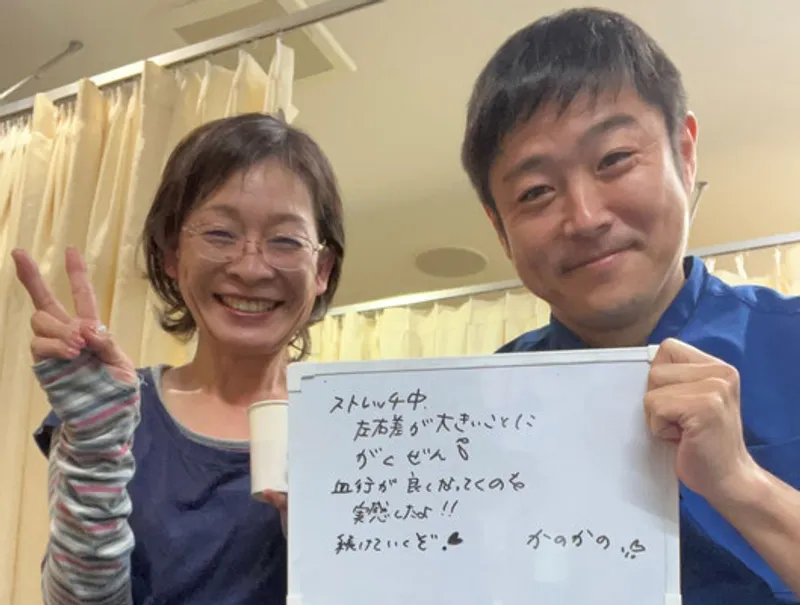 ストレッチ中、
左右差が大きいことに
がくぜん
血行が良くなってくのを
実感したよ!!
続けていくぞ!
かのかの